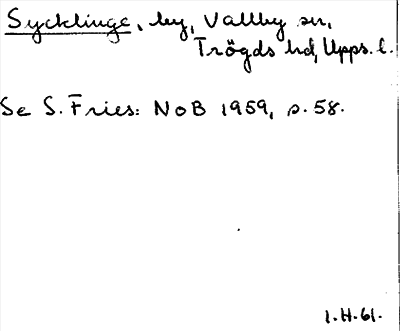 Sycklinge, by, Vallby sn,
Trögds hd, Upps. l.
Se S. Fries: NoB 1959, s. 58.
1.H.61.